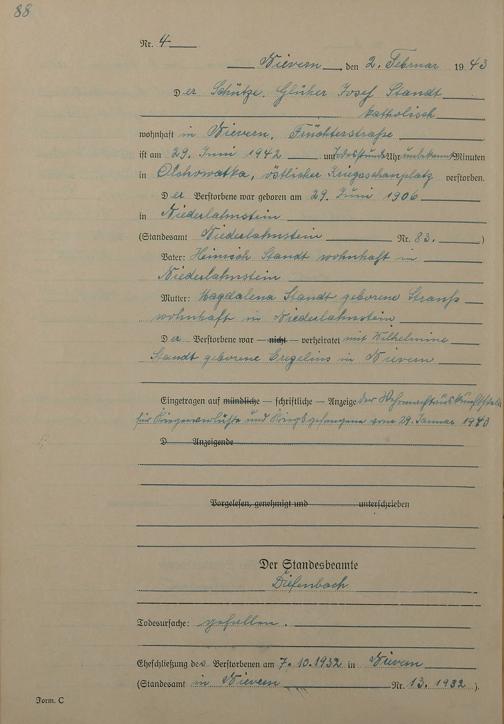 88
Nr. 4
Nievern, den 2. Februar 1943
Der Schütze, Glüher Josef Standt
katholisch
wohnhaft in Nievern, Früchterstraße
ist am 29. Juni 1942 um Todesstunde Uhr unbekannt Minuten
in Olchowatka, östlicher Kriegsschauplatz verstorben.
Der Verstorbene war geboren am 29. Juni 1906
in Niederlahnstein
(Standesamt Niederlahnstein Nr. 83.)
Vater: Heinrich Standt wohnhaft in
Niederlahnstein
Mutter: Magdalena Standt geborene Strauß
wohnhaft in Niederlahnstein
Der Verstorbene war — nicht — verheiratet mit Wilhelmine
Standt geborene in Nievern
Eingetragen auf mündliche — schriftliche — Anzeige der Wehrmachtauskunftstelle
für Kriegerverluste und Kriegsgefangene vom 29. Januar 1943
D Anzeigende
Vorgelesen, genehmigt und unterschrieben
Der Standesbeamte
Diefenbach
Todesursache: gefallen.
Eheschließung des Verstorbenen am 7.10.1932 in Nievern
(Standesamt in Nievern Nr. 13.1932).
Form. C